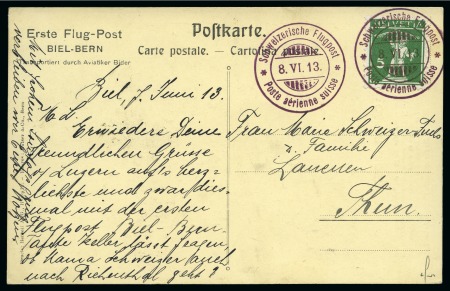 Erste Flug-Post
BIEL-BERN
transportiert durch Aviatiker Bider
Postkarte.
Carte postale. - Cartolina postale.
Schweizerische Flugpost
8. VI. 13.
Poste aérienne suisse
Schweizerische Flugpost
8. VI. 13.
Poste aérienne suisse
5
Biel, 7. Juni 13.
Erwiedere Deine
freundlichen Grüsse
v/ Luzern auf's herz-
lichste und zwar dies-
mal mit der ersten
Flugpost Biel-Bern
Tante Keller lässt fragen,
ob Hanna Schweizer auch
nach Richenthal geht?
Frau Marie Schweizer
& Familie
Lauenen
Thun.